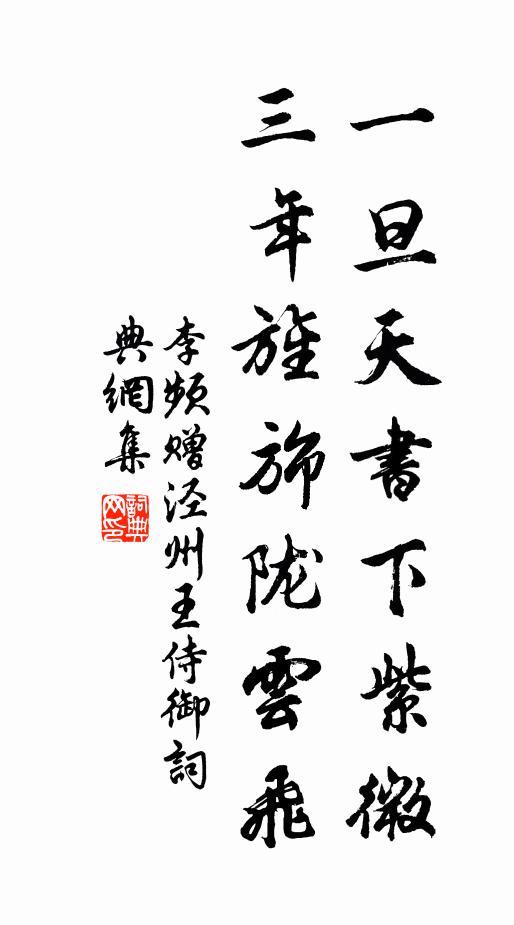 一旦天書下紫微
三年旌旆陇雲飛
李频赠泾州王侍御詞
典網集
詞典
网印